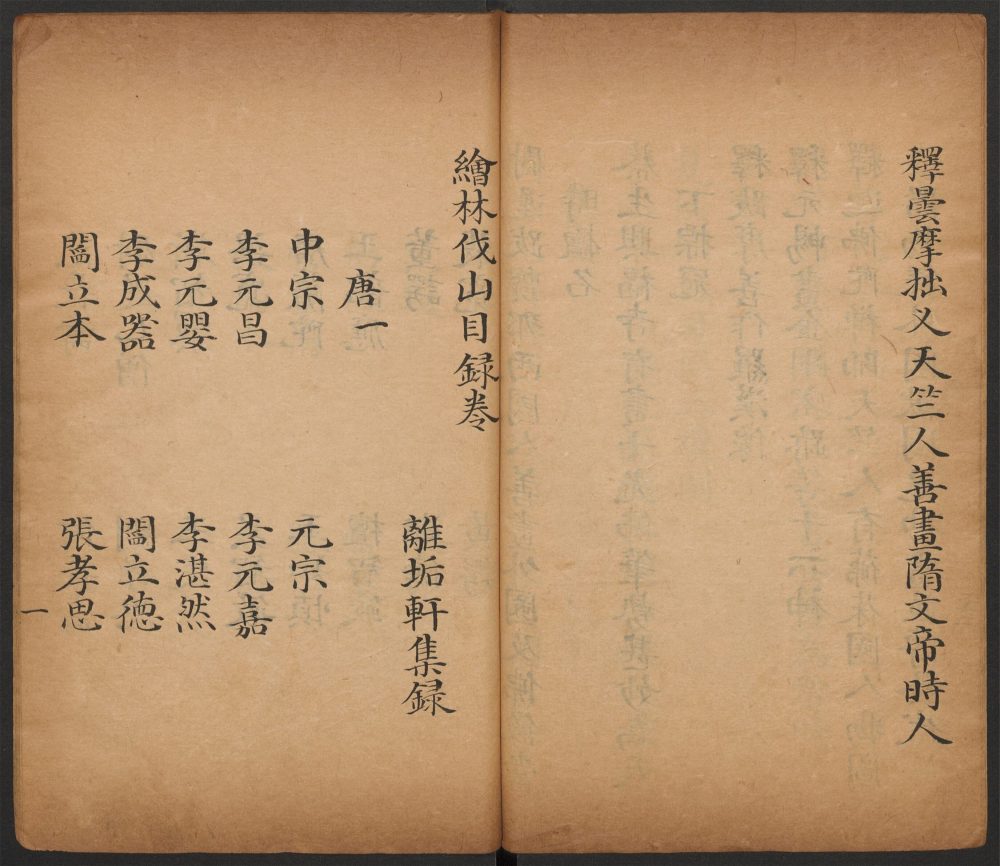 釋曇摩拙义天竺人善畫隋文帝時人
繪林伐山目録卷
離垢軒集録
唐一
中宗 元宗
李元昌 李元嘉
李元嬰 李湛然
李成器 閻立德
閻立本 張孝思
一